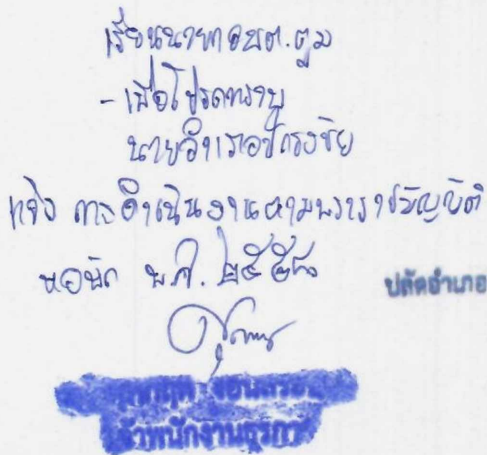 เรียนนายก อบต.ตูม
- เพื่อโปรดทราบ
นายอำเภอปักธงชัย
แจ้ง การดำเนินงานตามพระราชบัญญัติ
หอพัก พ.ศ. ๒๕๕๘
ปลัดอำเภอ
เจ้าพนักงานธุรการ